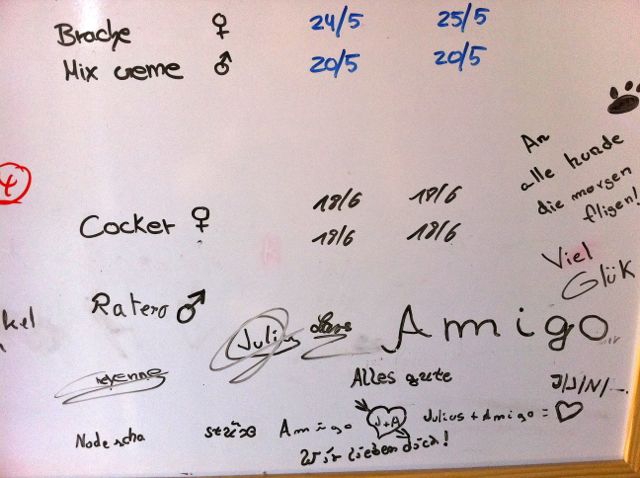 Brache ♀ 24/5 25/5
Mix creme ♂ 20/5 20/5
An
alle hunde
die morgen
fligen!
4
18/6 18/6
Cocker ♀ 18/6 18/6
Viel
Glük
kel
Ratero ♂
Julius Lars Amigo
Cheyenne Alles gute J/J/N/...
Nadescha Amigo J+A Julius + Amigo = ♡
Wir lieben dich!